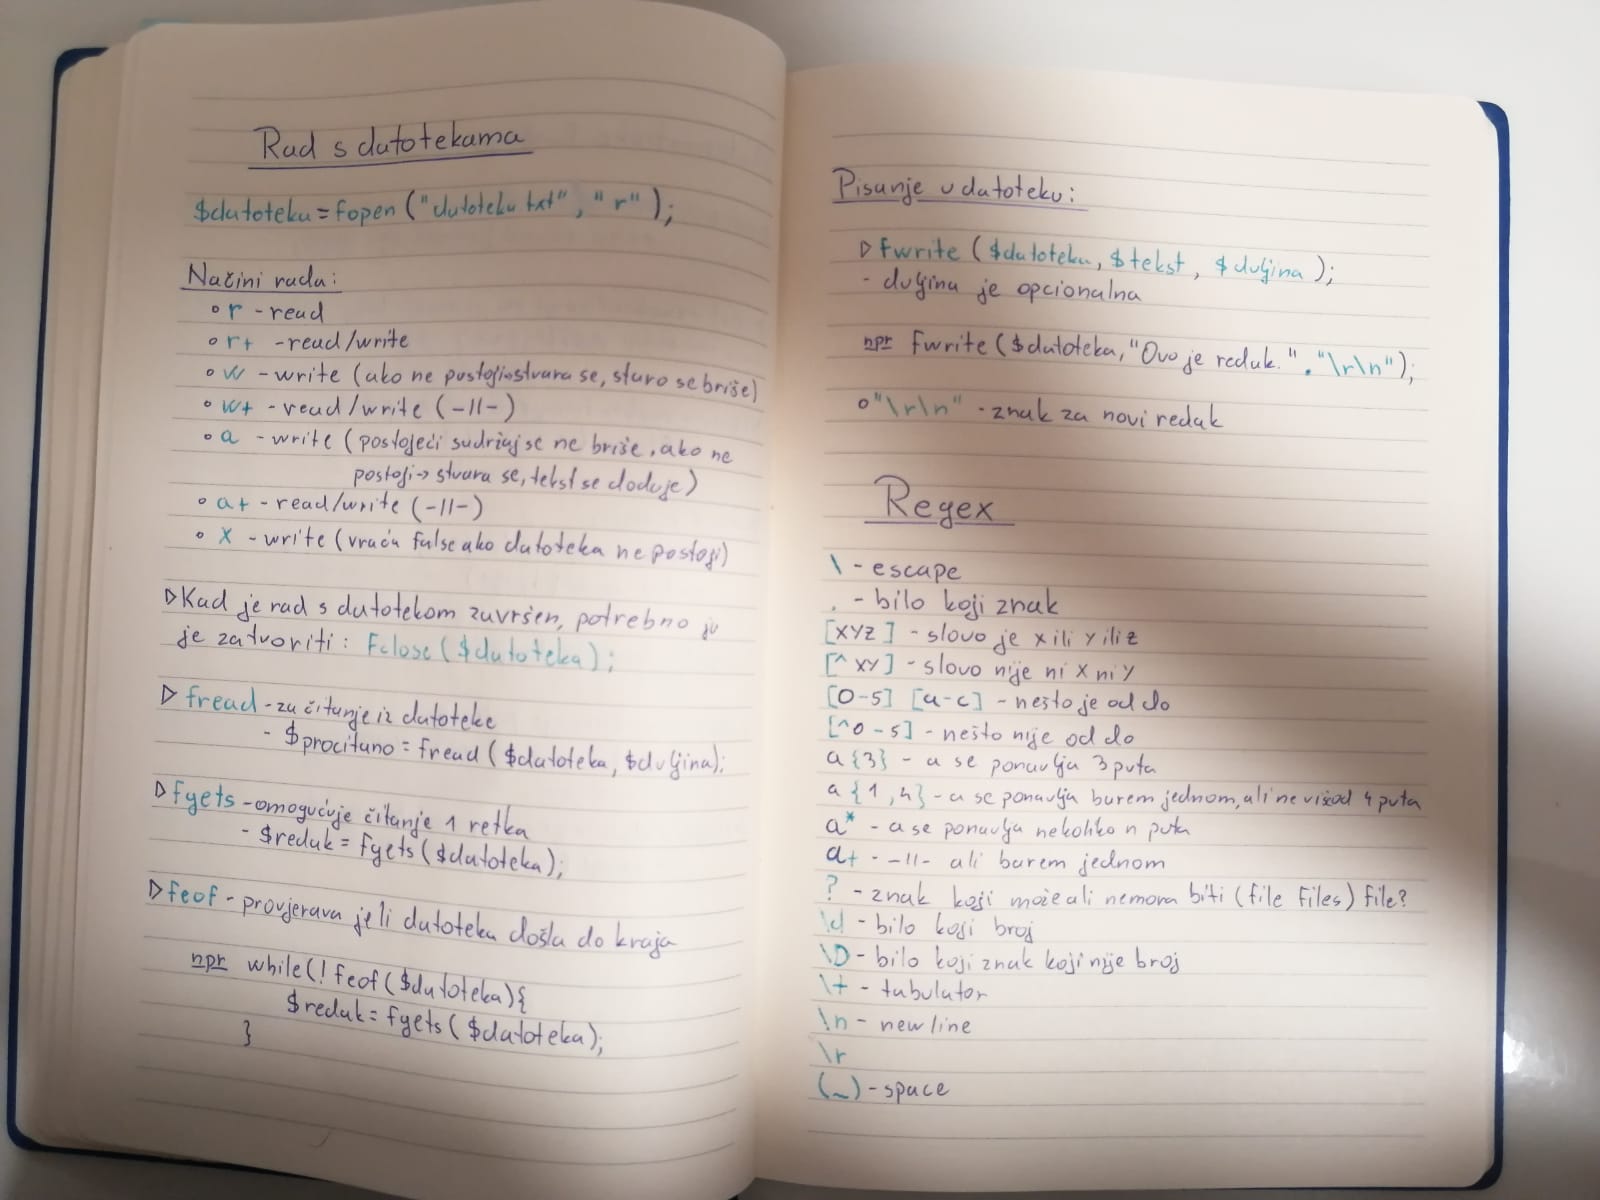 Rad s datotekama
$datoteka = fopen ("datoteka.txt", "r");
Načini rada:
◦ r - read
◦ r+ - read/write
◦ w - write (ako ne postoji→stvara se, staro se briše)
◦ w+ - read/write (-||-)
◦ a - write (postojeći sadržaj se ne briše, ako ne
postoji→ stvara se, tekst se dodaje)
◦ a+ - read/write (-||-)
◦ x - write (vraća false ako datoteka ne postoji)
▷ Kad je rad s datotekom završen, potrebno ju
je zatvoriti: fclose ($datoteka);
▷ fread - za čitanje iz datoteke
- $procitano = fread ($datoteka, $duljina);
▷ fgets - omogućuje čitanje 1 retka
- $redak = fgets ($datoteka);
▷ feof - provjerava je li datoteka došla do kraja
npr while(! feof ($datoteka){
$redak = fgets ($datoteka);
}
Pisanje u datoteku:
▷ fwrite ($datoteka, $tekst, $duljina);
- duljina je opcionalna
npr fwrite ($datoteka, "Ovo je redak." . "\r\n");
◦ "\r\n" - znak za novi redak
Regex
\ - escape
. - bilo koji znak
[xyz] - slovo je x ili y ili z
[^xy] - slovo nije ni x ni y
[0-5] [a-c] - nešto je od do
[^0-5] - nešto nije od do
a{3} - a se ponavlja 3 puta
a{1,4} - a se ponavlja barem jednom, ali ne više od 4 puta
a* - a se ponavlja nekoliko n puta
a+ - -||- ali barem jednom
? - znak koji može ali nemora biti (file files) file?
\d - bilo koji broj
\D - bilo koji znak koji nije broj
\t - tabulator
\n - new line
\r
(_) - space